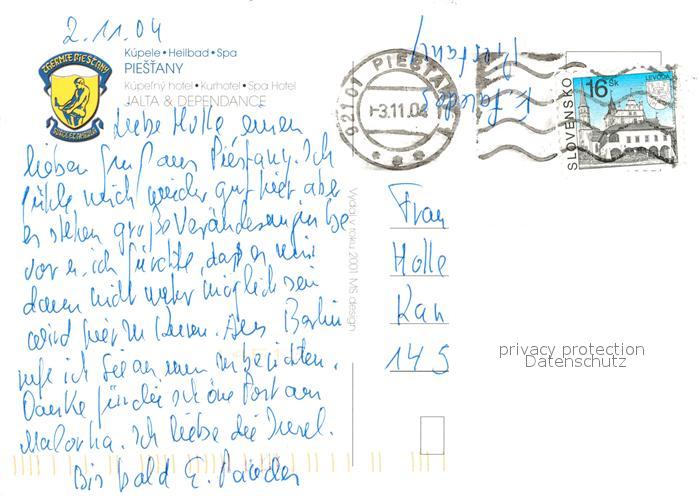 2.11.04
KÚPELE PIEŠŤANY
Kúpele • Heilbad • Spa
PIEŠŤANY
Kúpeľný hotel • Kurhotel • Spa Hotel
JALTA & DEPENDANCE
Liebe Holle einen
lieben Gruß aus Piéstany. Ich
fühle mich wieder gut hier aber
es stehen große Veränderungen be
vor u. ich fürchte, daß es mir
dann nicht mehr möglich sein
wird hier zu kuren. Aus Berlin
rufe ich Sie an um zu berichten.
Danke für die schöne Post aus
Malorka. Ich liebe die Insel.
Bis bald E.
Vydal v roku 2001 MS design
921 01 PIEŠŤANY
-3.11.04
Piestany
SLOVENSKO
16 Sk
LEVOČA
Frau
Holle
Kan
145
privacy protection
Datenschutz